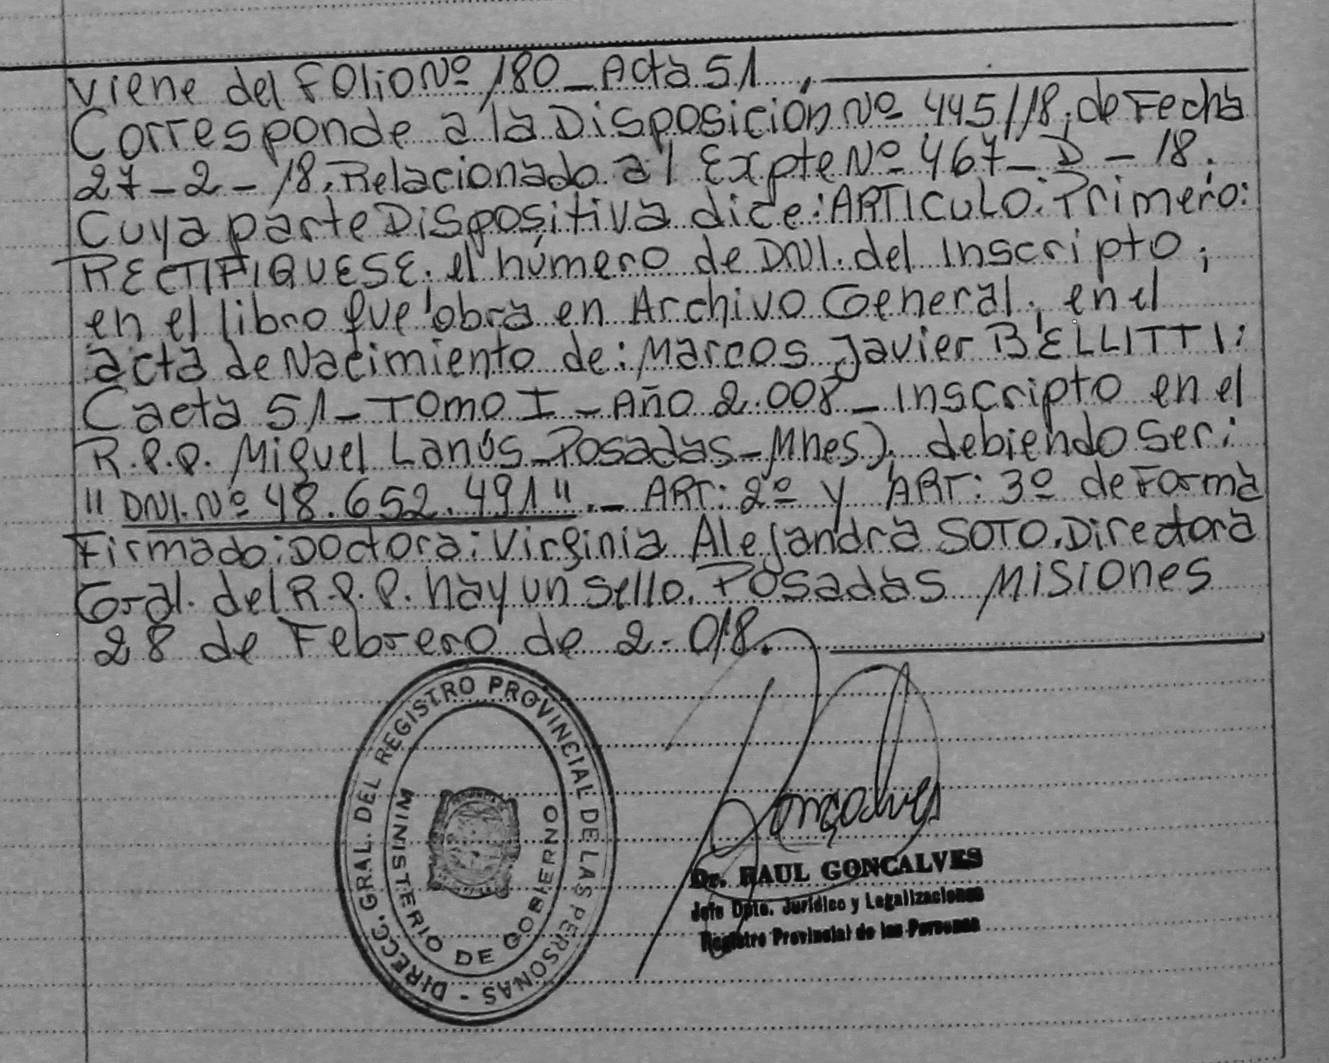 Viene del Folio Nº 180_Acta 51,
Corresponde a la Disposición Nº 445/18; de Fecha
27-2-18. Relacionado al Expte Nº 467_D-18.
Cuya parte Dispositiva dice: ARTICULO: Primero:
RECTIFIQUESE. el número de DNI. del Inscripto;
en el libro que obra en Archivo General. en el
acta de Nacimiento de: Marcos Javier BELLITTI:
Cacta 51_Tomo I_Año 2.008_Inscripto en el
R.P.P. Miguel Lanús_Posadas_Mnes), debiendo ser:
"DNI. Nº 48.652.491"._ ART: 2º y ART: 3º de Forma
Firmado: Doctora: Virginia Alejandra SOTO. Directora
Gral. del R.P.P. hay un sello. Posadas Misiones
28 de Febrero de 2.018.
DIRECC. GRAL. DEL REGISTRO PROVINCIAL DE LAS PERSONAS -
MINISTERIO DE GOBIERNO
Gonçalves
Dr. RAUL GONCALVES
Jefe Dpto. Jurídico y Legalizaciones
Registro Provincial de las Personas